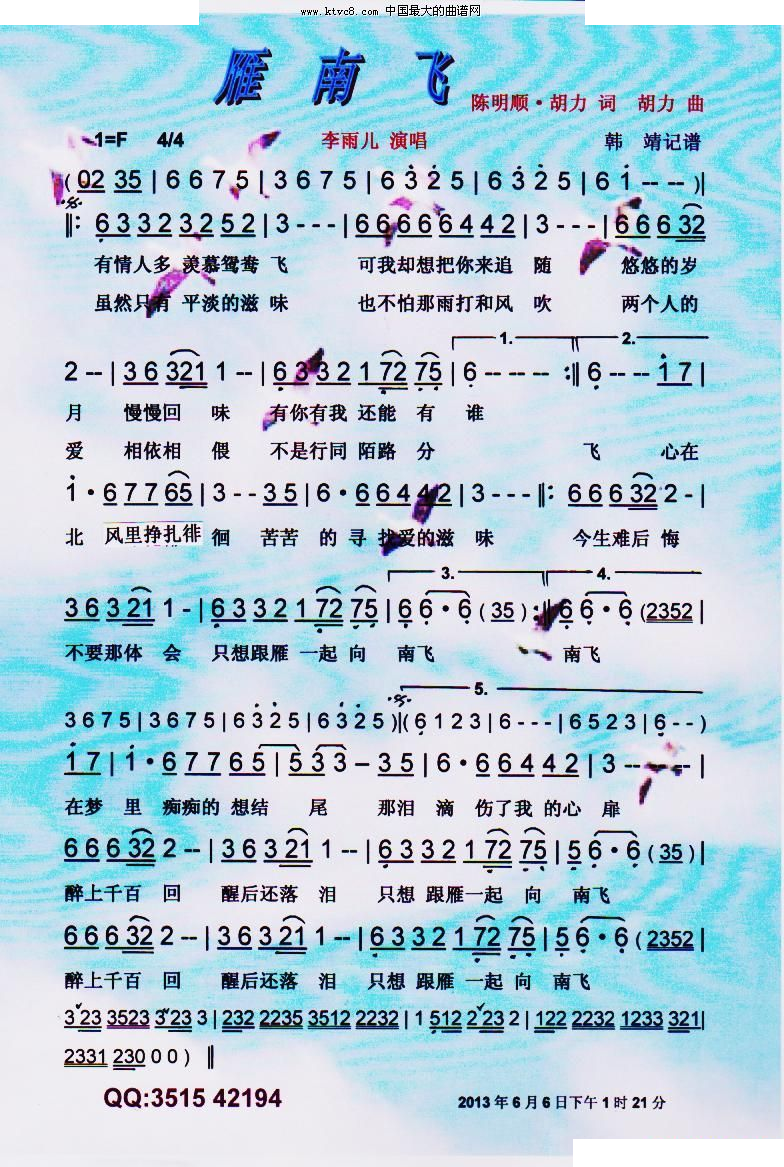 www.ktvc8.com 中国最大的曲谱网
雁 南 飞
陈明顺·胡力 词 胡力 曲
1=F 4/4 李雨儿 演唱 韩 靖记谱
( 02 35 | 6 6 7 5 | 3 6 7 5 | 6 3 2 5 | 6 3 2 5 | 6 1 -- -- )|
‖: 6 3 3 2 3 2 5 2 | 3 - - - | 6 6 6 6 6 4 4 2 | 3 - - - | 6 6 6 32
有情人多 羡慕鸳鸯 飞 可我却想把你来追 随 悠悠的岁
虽然只有 平淡的滋 味 也不怕那雨打和风 吹 两个人的
1. 2.
2 -- | 3 6 321 1 -- | 6 3 3 2 1 72 75 | 6 -- -- -- :‖ 6 -- -- 1 7 |
月 慢慢回 味 有你有我 还能 有 谁
爱 相依相 偎 不是行同 陌路 分 飞 心在
1 · 6 7 7 65 | 3 - - 3 5 | 6 · 6 6 4 4 2 | 3 - - - ‖: 6 6 6 32 2 - |
北 风里挣扎徘 徊 苦苦 的 寻 找爱的滋 味 今生难后 悔
3. 4.
3 6 3 21 1 - | 6 3 3 2 1 72 75 | 6 6 · 6 ( 35 ) :‖ 6 6 · 6 (2352 |
不要那体 会 只想跟雁 一起 向 南飞 南飞
5.
3 6 7 5 | 3 6 7 5 | 6 3 2 5 | 6 3 2 5 )‖( 6 1 2 3 | 6 - - - | 6 5 2 3 | 6 - - )
1 7 | 1 · 6 7 7 65 | 5 3 3 – 3 5 | 6 · 6 6 4 4 2 | 3 -- -- -- |
在梦 里 痴痴的 想结 尾 那泪 滴 伤了我 的心 扉
6 6 6 32 2 -- | 3 6 3 21 1 -- | 6 3 3 2 1 72 75 | 5 6 · 6 ( 35 ) |
醉上千百 回 醒后还落 泪 只想 跟雁一起 向 南飞
6 6 6 32 2 -- | 3 6 3 21 1 -- | 6 3 3 2 1 72 75 | 5 6 · 6 (2352 |
醉上千百 回 醒后还落 泪 只想 跟雁 一起 向 南飞
3 23 3523 3 23 3 | 232 2235 3512 2232 | 1 512 2 23 2 | 122 2232 1233 321|
2331 230 0 0 ) ‖
QQ:3515 42194
2013 年 6 月 6 日下午 1 时 21 分